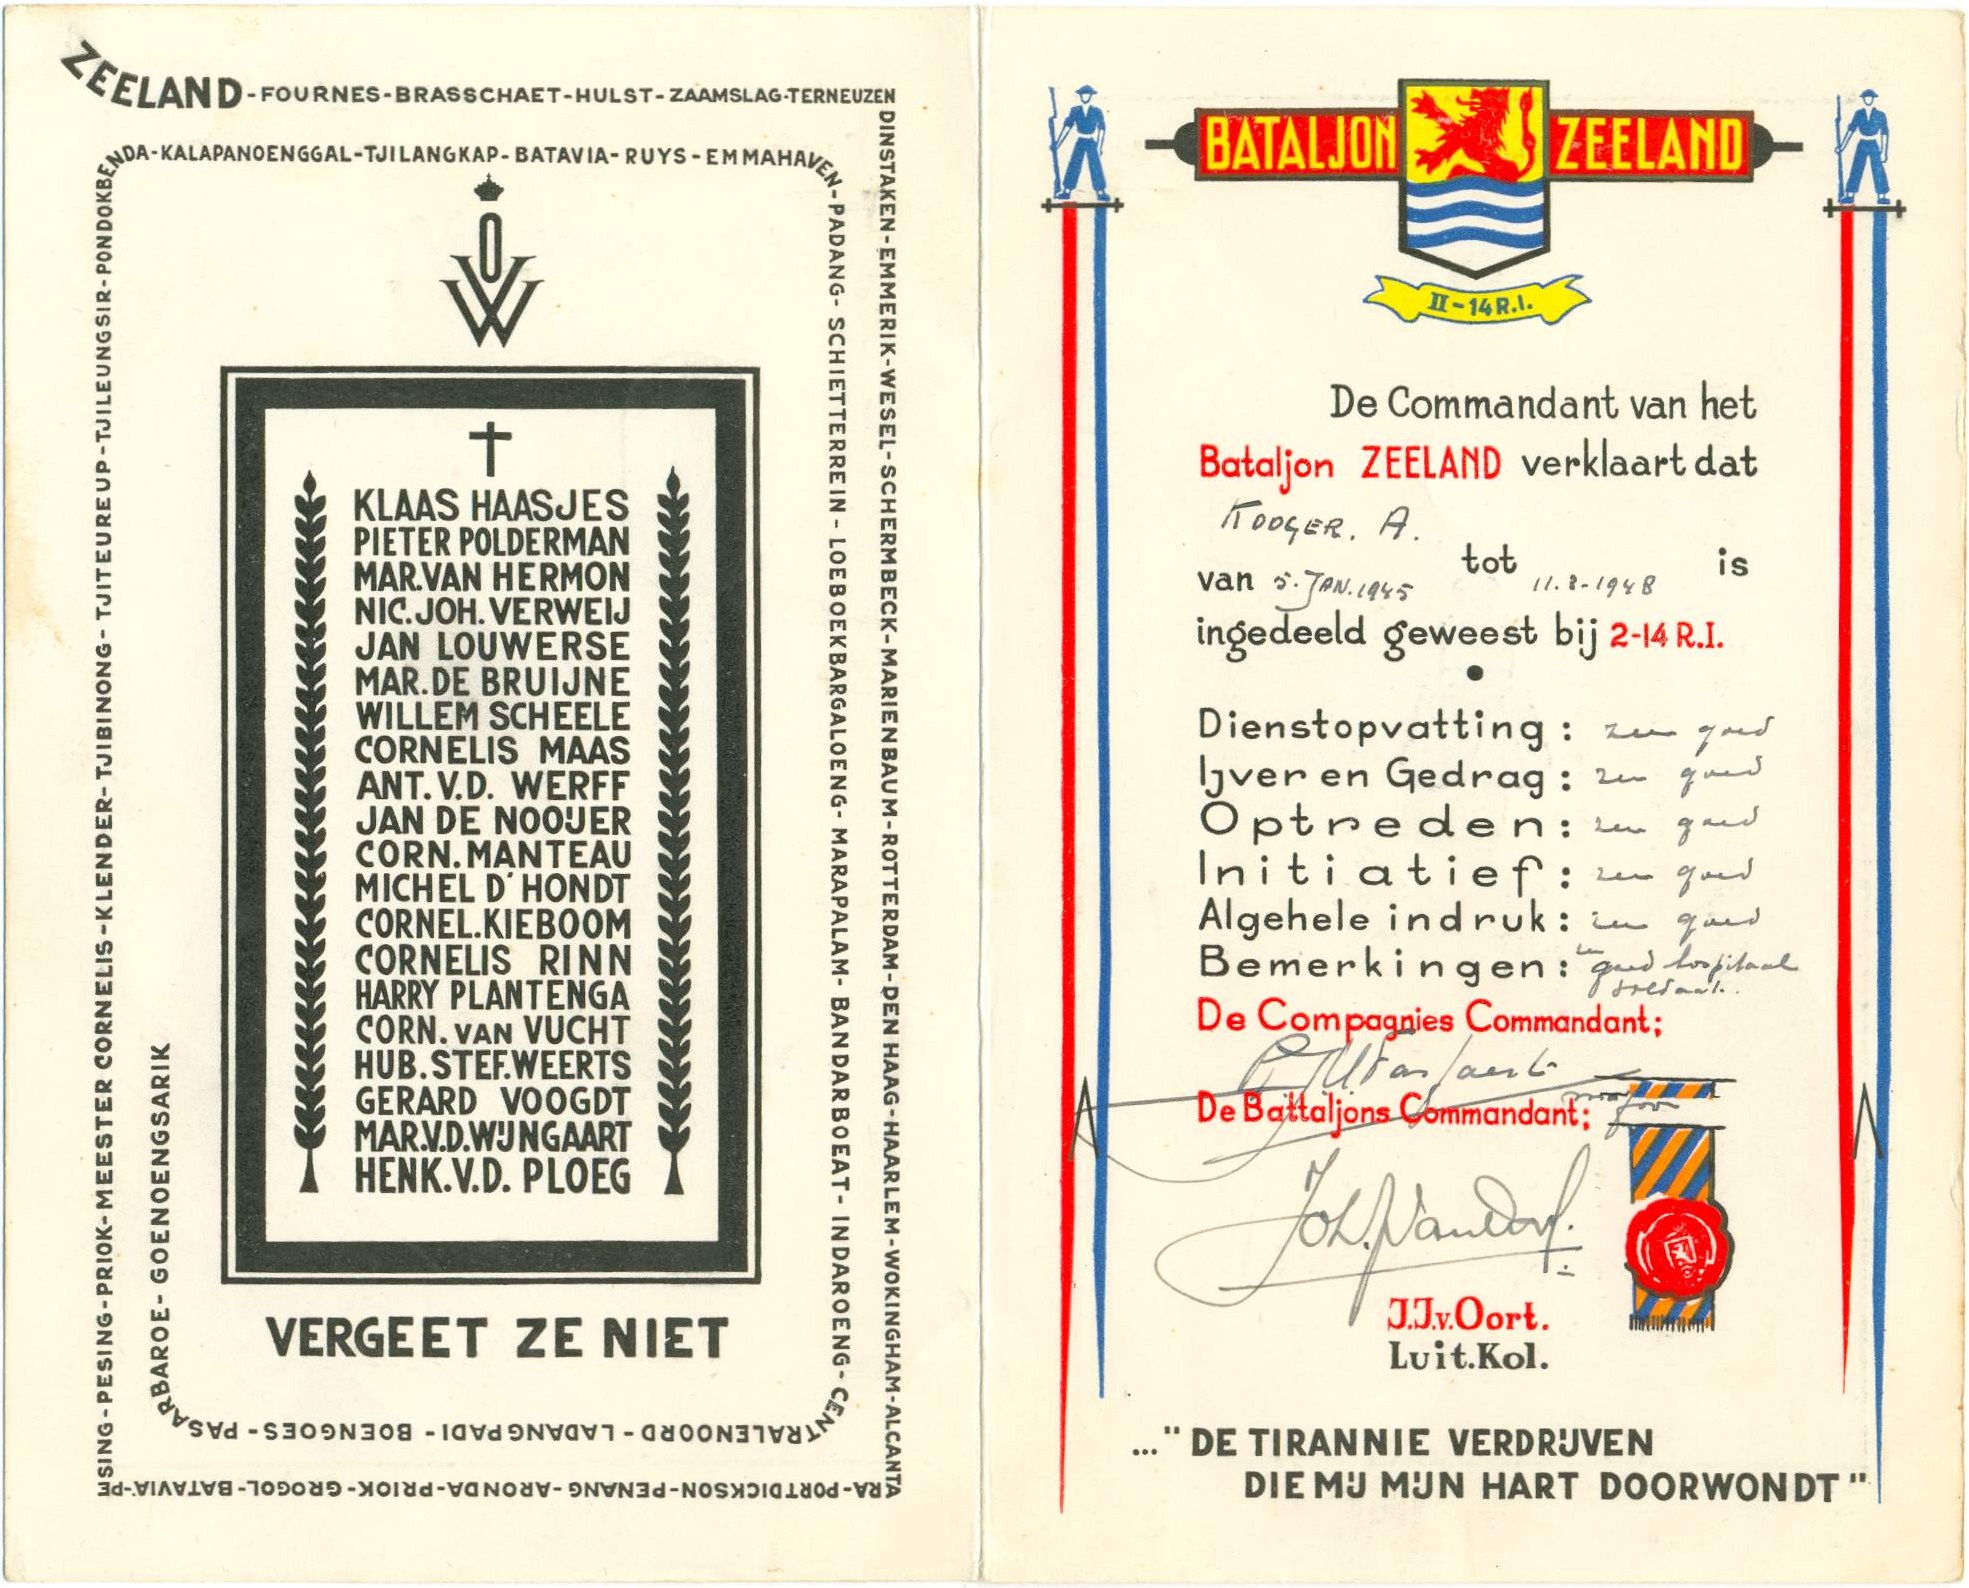 ZEELAND-FOURNES-BRASSCHAET-HULST-ZAAMSLAG-TERNEUZEN
DINSTAKEN-EMMERIK-WESEL-SCHERMBECK-MARIENBAUM-ROTTERDAM-DEN HAAG-HAARLEM-WOKINGHAM-ALCANTA
RA-PORTDICKSON-PENANG-ARONDA-PRIOK-GROGOL-BATAVIA-PE
SING-PESING-PRIOK-MEESTER CORNELIS-KLENDER-TJIBINONG-TJITEUREUP-TJILEUNGSIR-PONDOKBEN
DA-KALAPANOENGGAL-TJILANGKAP-BATAVIA-RUYS-EMMAHAVEN-
PADANG-SCHIETTERREIN-LOEBOEKBARGALOENG-MARAPALAM-BANDARBOEAT-INDAROENG-CEN
TRALENOORD-LADANGPADI-BOENGOES-PAS
ARBAROE-GOENOENGSARIK
W
KLAAS HAASJES
PIETER POLDERMAN
MAR.VAN HERMON
NIC.JOH.VERWEIJ
JAN LOUWERSE
MAR.DE BRUIJNE
WILLEM SCHEELE
CORNELIS MAAS
ANT.V.D. WERFF
JAN DE NOOIJER
CORN.MANTEAU
MICHEL D'HONDT
CORNEL.KIEBOOM
CORNELIS RINN
HARRY PLANTENGA
CORN. VAN VUCHT
HUB.STEF.WEERTS
GERARD VOOGDT
MAR.V.D.WIJNGAART
HENK.V.D. PLOEG
VERGEET ZE NIET
BATALJON ZEELAND
II-14 R.I.
De Commandant van het
Bataljon ZEELAND verklaart dat
KOOGER. A.
van 5. JAN. 1945 tot 11.8-1948 is
ingedeeld geweest bij 2-14 R.I.
Dienstopvatting: zeer goed
IJver en Gedrag: zeer goed
Optreden: zeer goed
Initiatief: zeer goed
Algehele indruk: zeer goed
Bemerkingen: goed hospitaal
soldaat.
De Compagnies Commandant;
De Battaljons Commandant;
J.J.v.Oort.
Luit.Kol.
..." DE TIRANNIE VERDRIJVEN
DIE MIJ MIJN HART DOORWONDT"